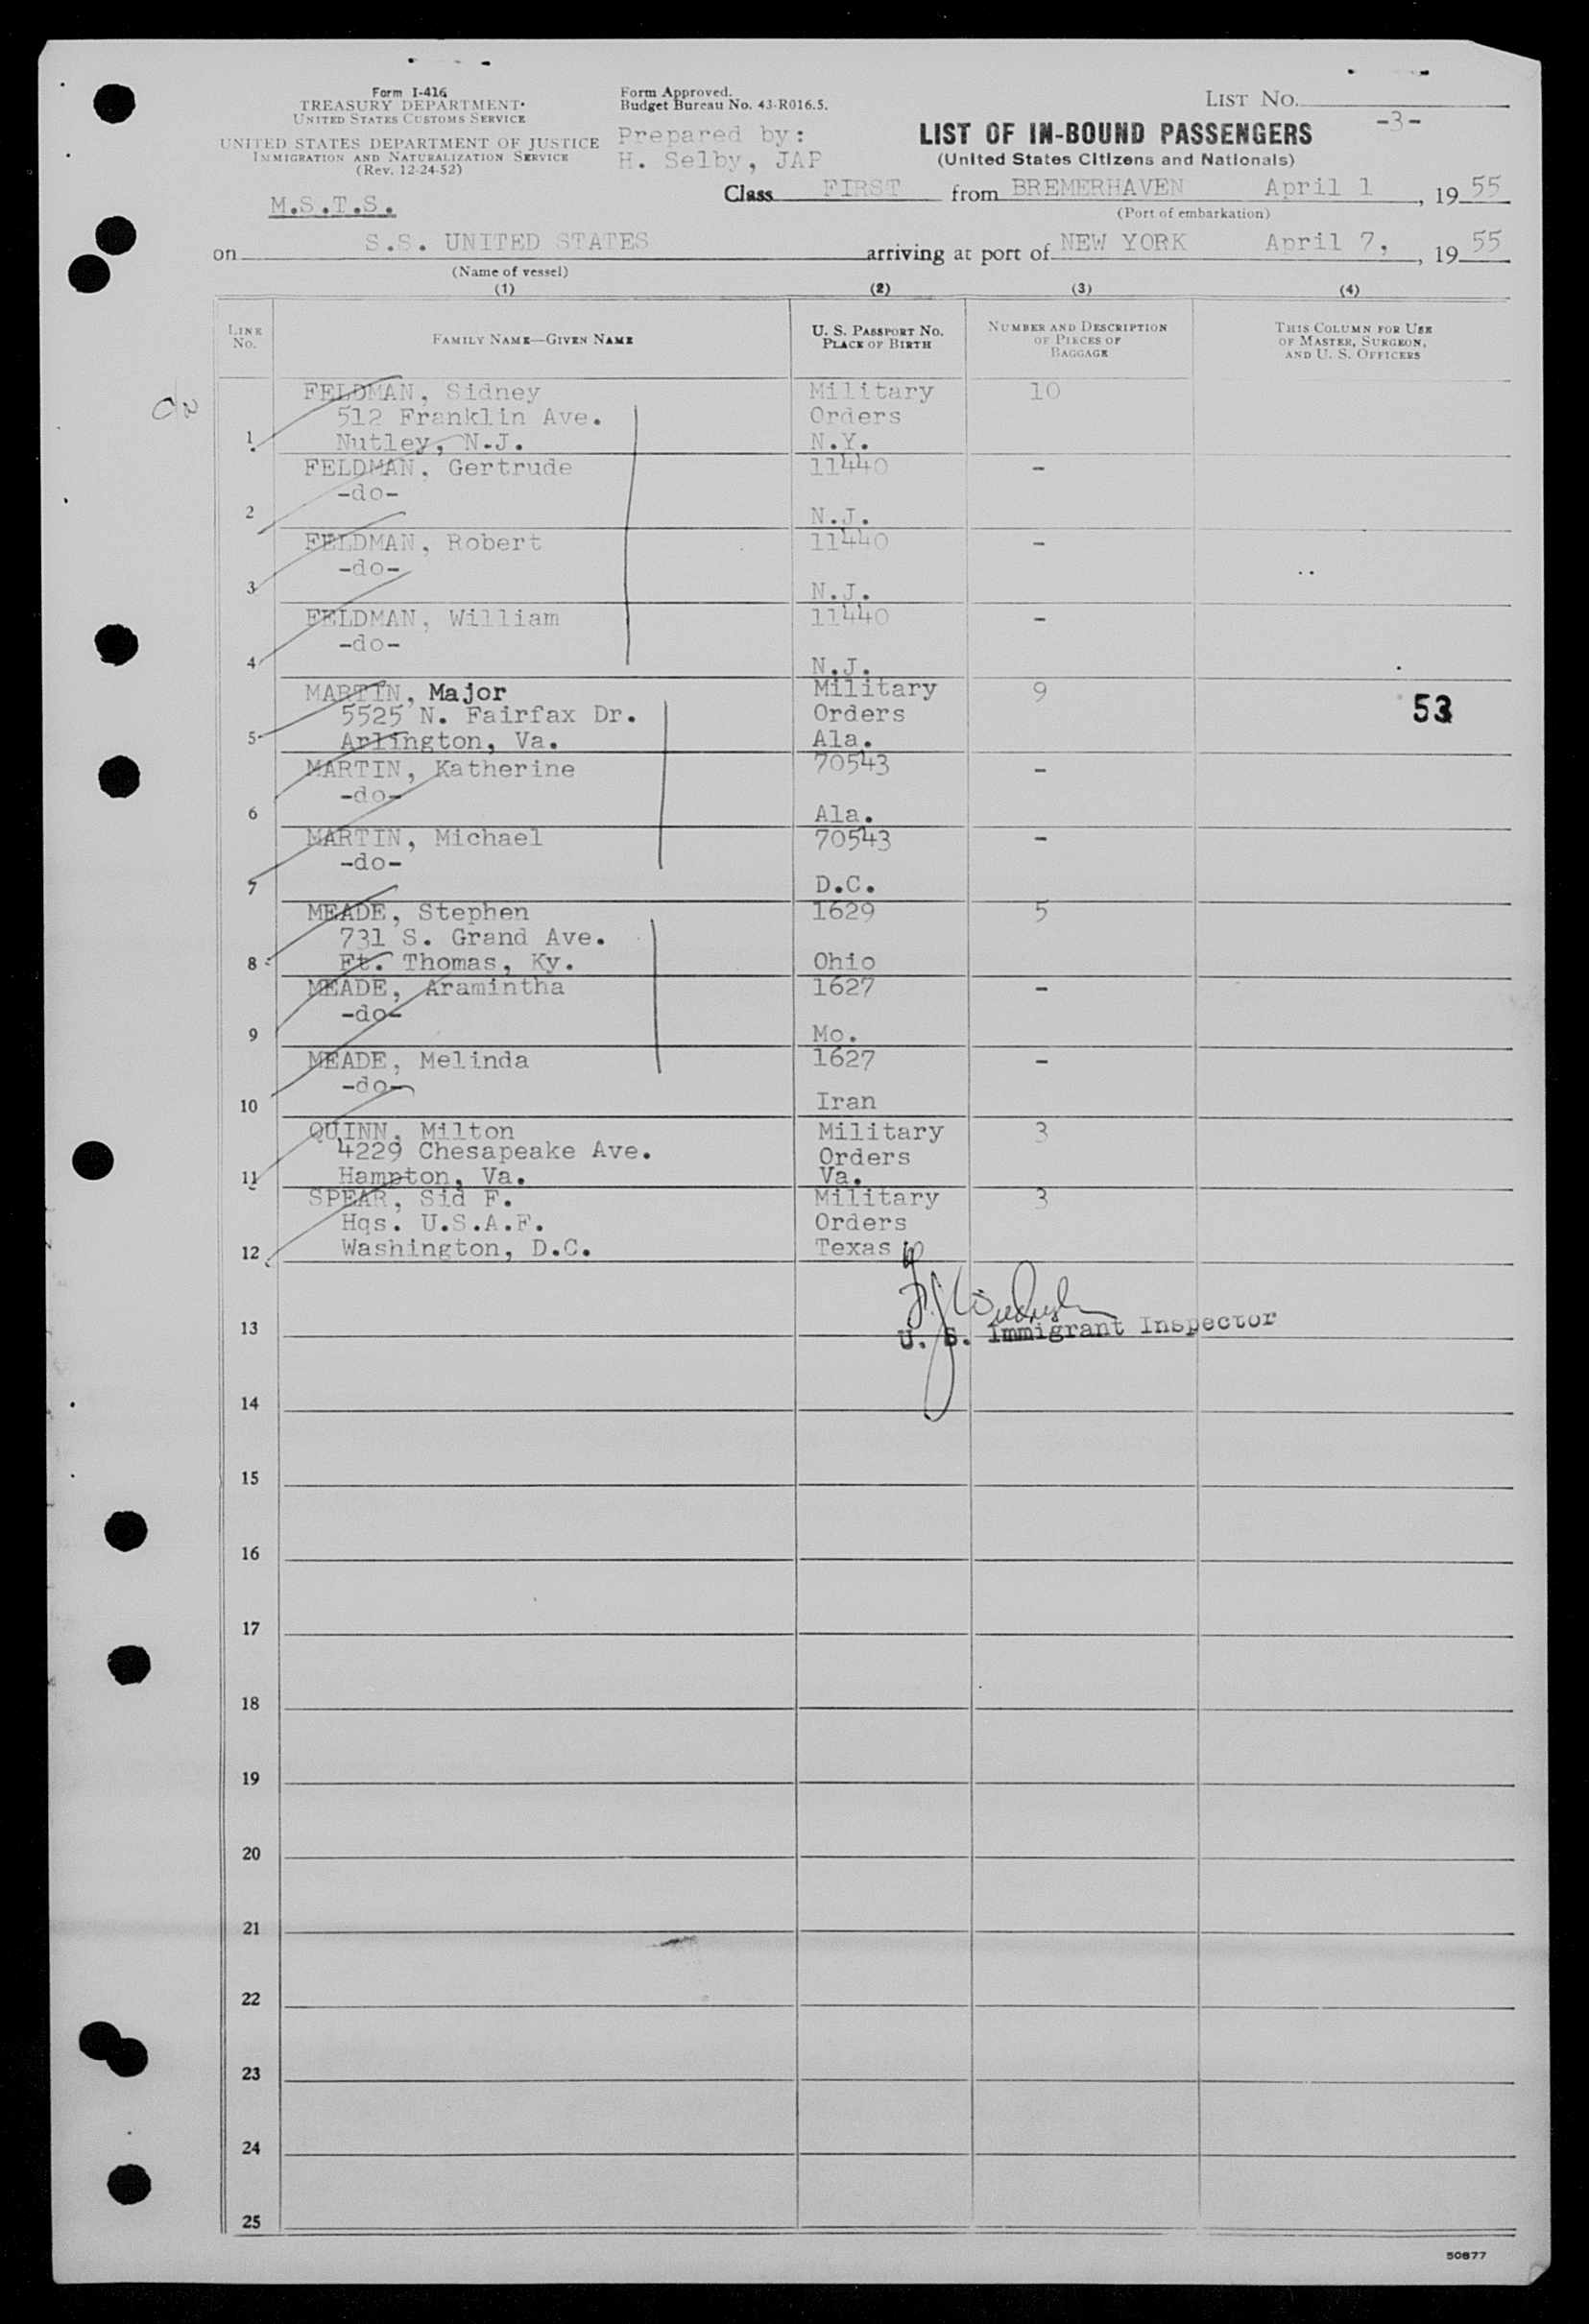 Form I-416
TREASURY DEPARTMENT
UNITED STATES CUSTOMS SERVICE
UNITED STATES DEPARTMENT OF JUSTICE
IMMIGRATION AND NATURALIZATION SERVICE
(Rev. 12-24-52)
M.S.T.S.
Form Approved.
Budget Bureau No. 43-R016.5.
Prepared by:
H. Selby, JAP
LIST NO.
-3-
LIST OF IN-BOUND PASSENGERS
(United States Citizens and Nationals)
Class FIRST from BREMERHAVEN April 1, 1955
(Port of embarkation)
on S.S. UNITED STATES arriving at port of NEW YORK April 7, 1955
(Name of vessel)
(1) (2) (3) (4)
LINE NO. FAMILY NAME—GIVEN NAME U. S. PASSPORT NO. PLACE OF BIRTH NUMBER AND DESCRIPTION OF PIECES OF BAGGAGE THIS COLUMN FOR USE OF MASTER, SURGEON, AND U. S. OFFICERS
FELDMAN, Sidney Military 10
512 Franklin Ave. Orders
1 Nutley, N.J. N.Y.
FELDMAN, Gertrude 11440 -
-do-
2 N.J.
FELDMAN, Robert 11440 -
-do-
3 N.J.
FELDMAN, William 11440 -
-do-
4 N.J.
MARTIN, Major Military 9
5525 N. Fairfax Dr. Orders 53
5 Arlington, Va. Ala.
MARTIN, Katherine 70543 -
-do-
6 Ala.
MARTIN, Michael 70543 -
-do-
7 D.C.
MEADE, Stephen 1629 5
731 S. Grand Ave.
8 Ft. Thomas, Ky. Ohio
MEADE, Aramintha 1627 -
-do-
9 Mo.
MEADE, Melinda 1627 -
-do-
10 Iran
QUINN, Milton Military 3
4229 Chesapeake Ave. Orders
11 Hampton, Va. Va.
SPEAR, Sid F. Military 3
Hqs. U.S.A.F. Orders
12 Washington, D.C. Texas
13 U. S. Immigrant Inspector
14
15
16
17
18
19
20
21
22
23
24
25
50877